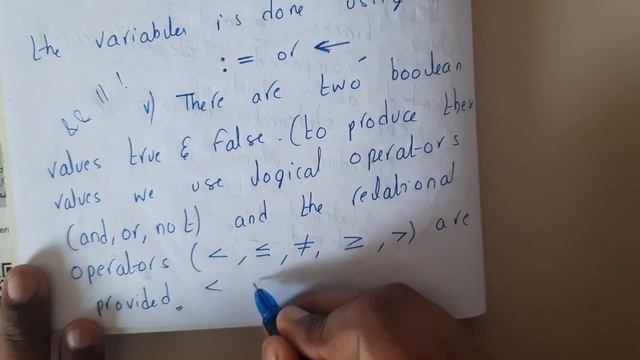 the variables is done using
:= or ←
&& || !
v) There are two boolean
values true & false. (to produce these
values we use logical operators
(and, or, not) and the relational
operators (<, ≤, ≠, ≥, >) are
provided. <